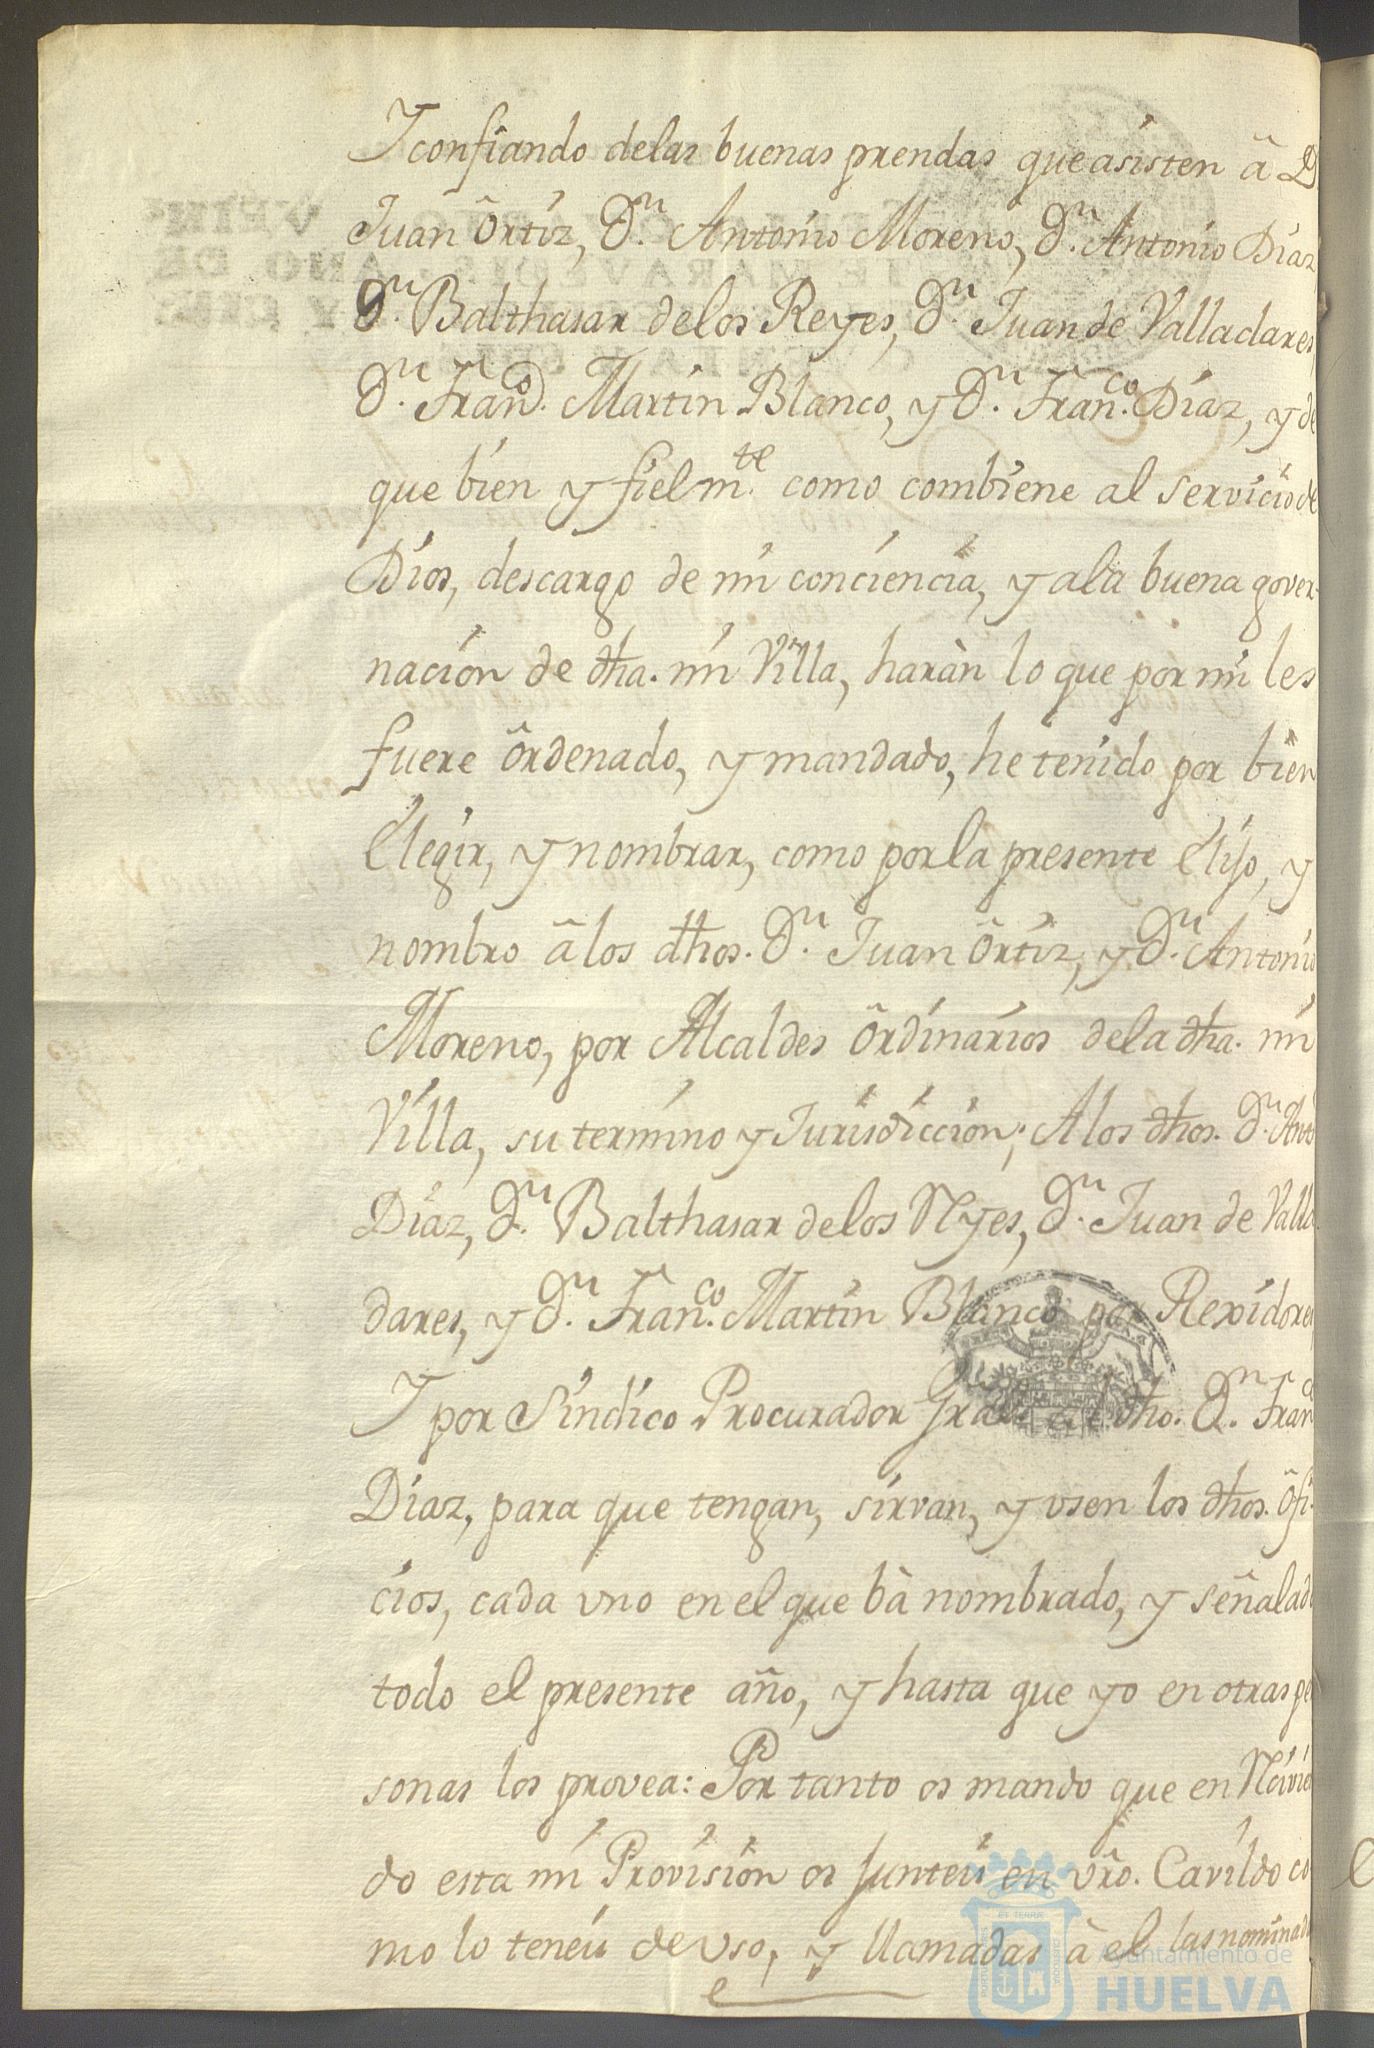 Y confiando delas buenas prendas que asisten â D
Juan Ôrtiz, D.n Antonio Moreno, D.n Antonio Diaz
D.n Balthasar delos Reyes, D.n Juan de Valladares,
D.n Fran.co Martin Blanco, y D.n Fran.co Diaz, y de
que bien y fielm.te como combiene al servicio de
Dios, descargo de mi conciencia, y ala buena gover-
nacion de dha. mi Villa, haràn lo que por mi les
fuere ôrdenado, y mandado, he tenido por bien
Elegir, y nombrar, como por la presente Elijo, y
nombro â los dhos. D.n Juan Ôrtiz, y D.n Antonio
Moreno, por Alcaldes Ôrdinarios dela dha. mi
Villa, su termino y Jurisdiccion; A los dhos. D.n Anto
Diaz, D.n Balthasar delos Ryes, D.n Juan de Valla
dares, y D.n Fran.co Martin Blanco por Rexidores
Y por Sindico Procurador Gral al dho. D.n Fran.co
Diaz, para que tengan, sirvan, y vsen los dhos. ôfi-
cios, cada vno en el que bà nombrado, y señalado
todo el presente año, y hasta que yo en otras per
sonas los provea: Por tanto os mando que en Rcivien
do esta mi Provision os junteis en vro. Cavildo co
mo lo teneis de vso, y llamadas à el las nominadas
Ayuntamiento de
HUELVA